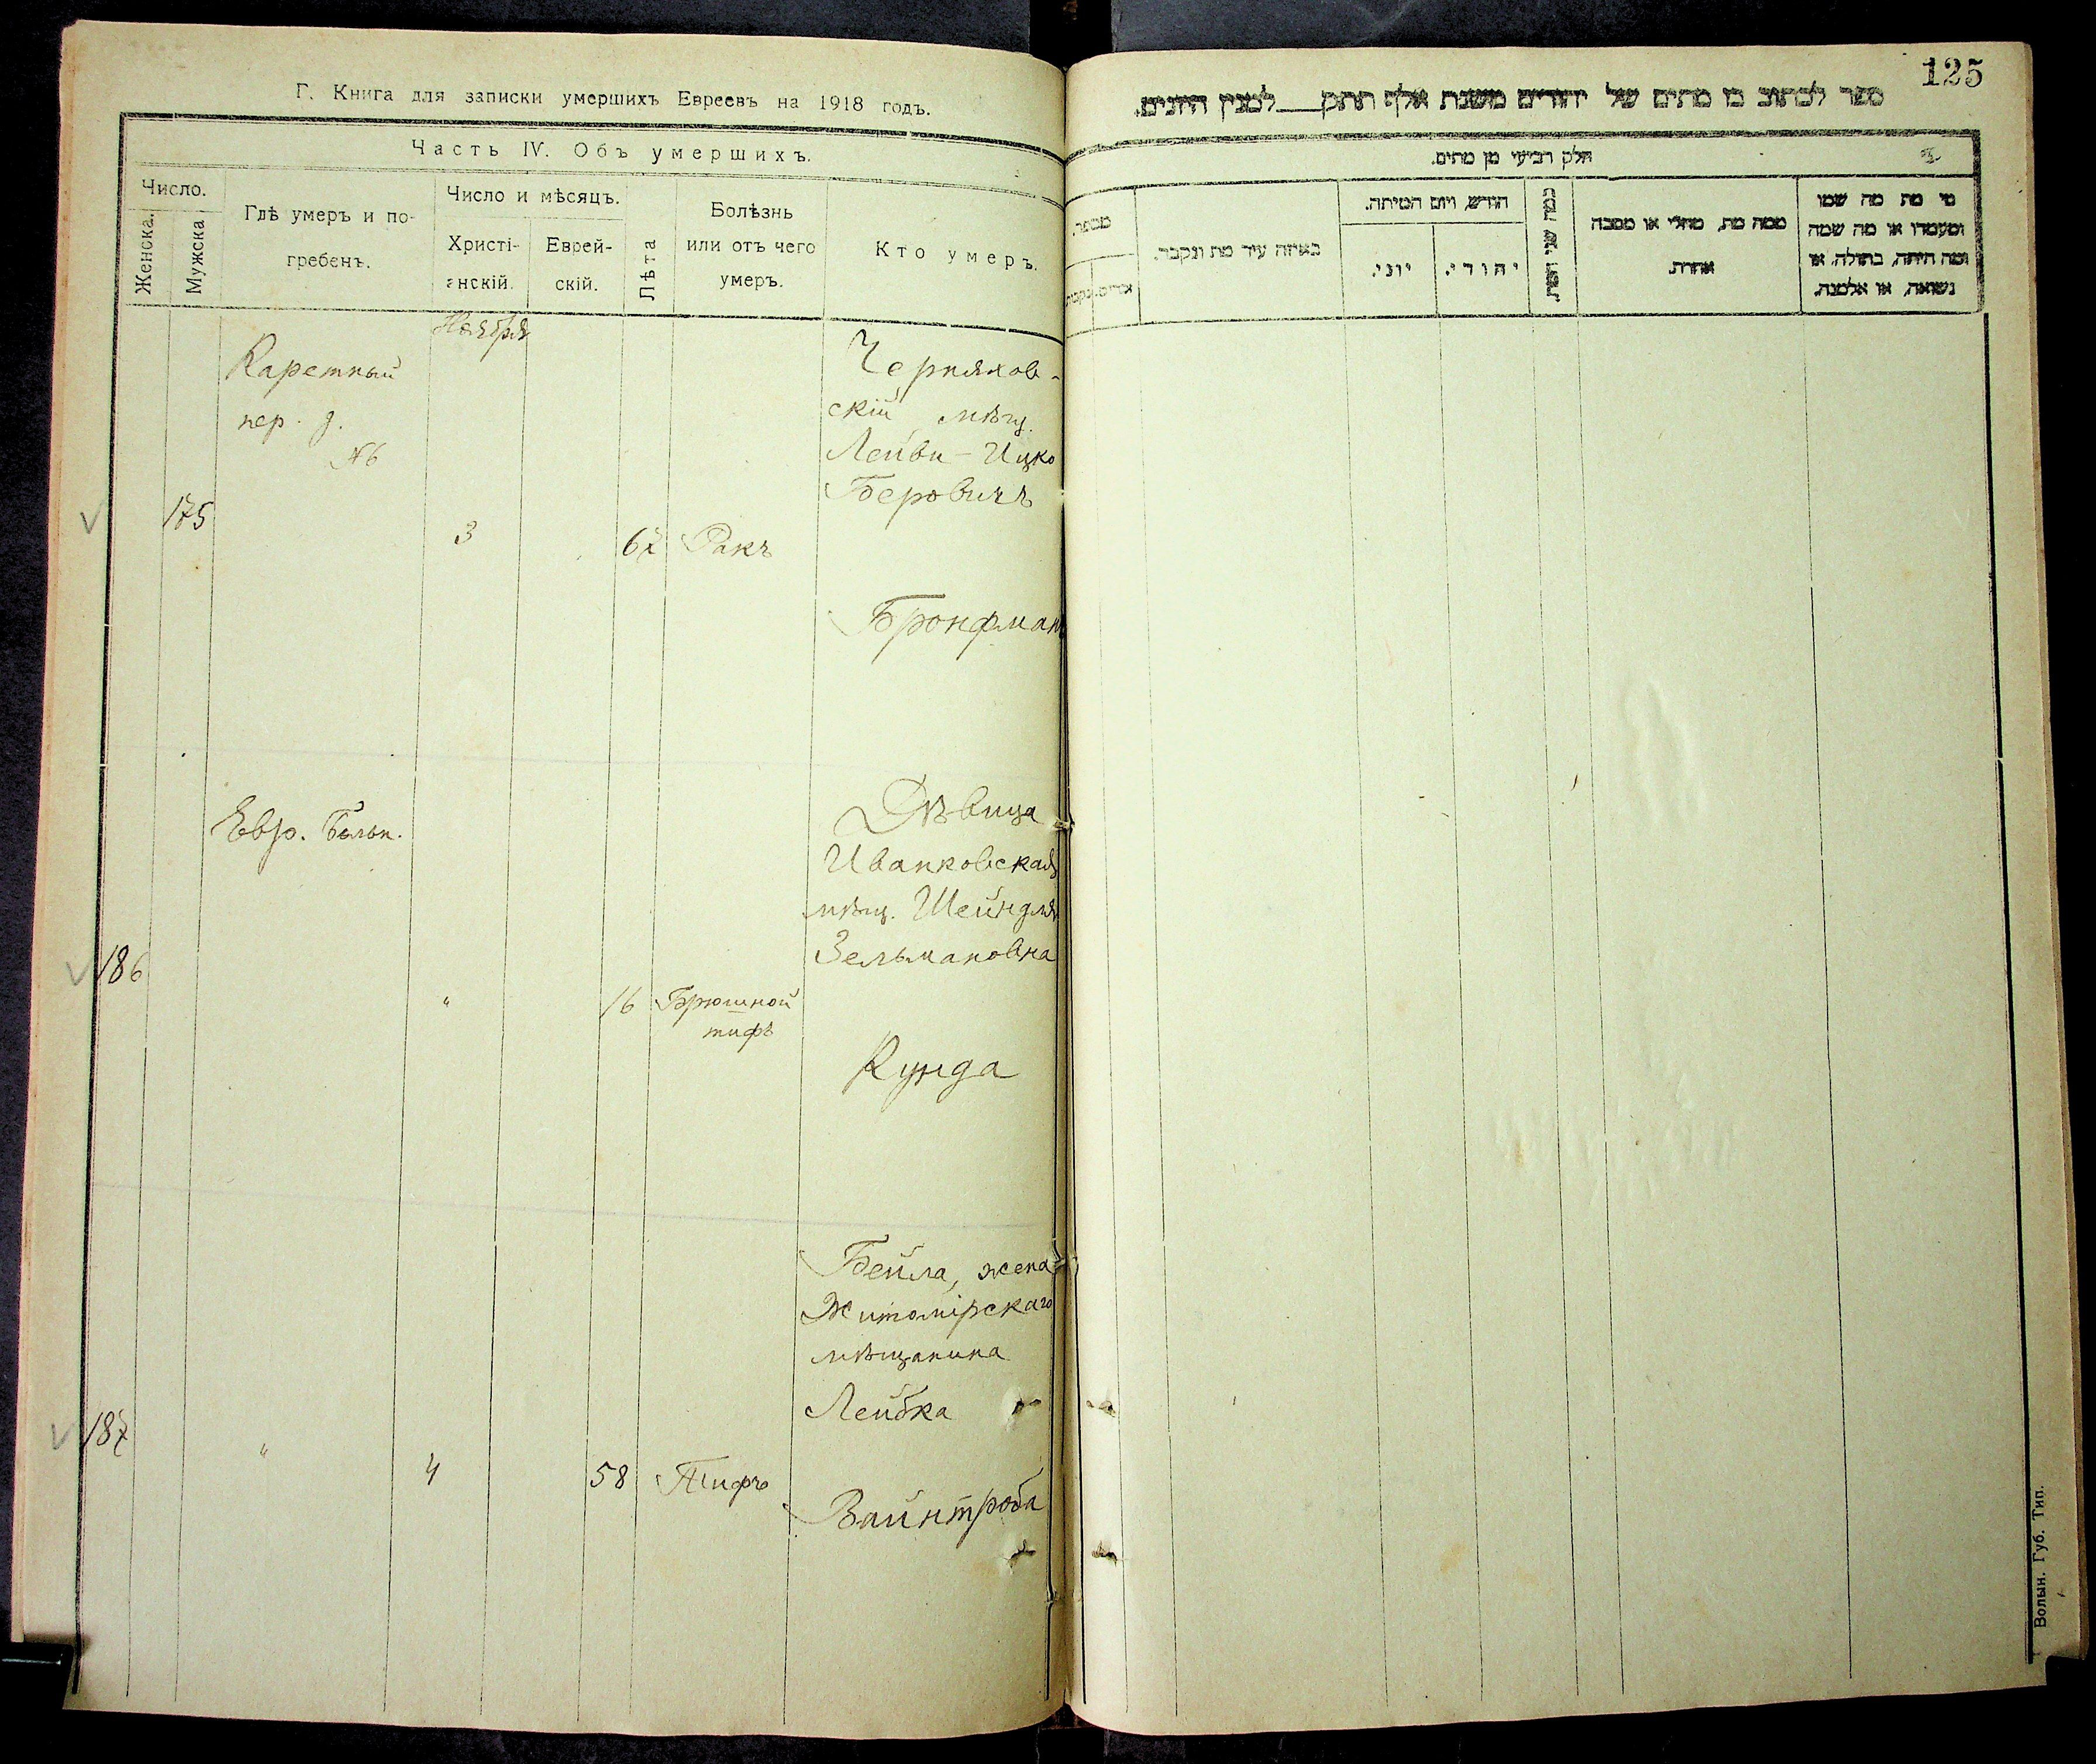 Г. Книга для записки умершихъ Евреевъ на 1918 годъ.
Часть IV. Объ умершихъ.
Число.
Женска.
Мужска
Гдѣ умеръ и по-
гребенъ.
Число и мѣсяцъ.
Христі-
анскій.
Еврей-
скій.
Лѣта
Болѣзнь
или отъ чего
умеръ.
Кто умеръ.
Ноября
Каретный
пер. д.
№6
175
3
67
Ракъ
Черняхов-
скій, мѣщ.
Лейви-Ицко
Беровичъ
Бронфман
Евр. Больн.
186
"
16
Брюшной
тифъ
Дѣвица
Иванковская
мѣщ. Шейндля
Зельмановна
Кунда
187
"
4
58
Тифъ
Бейла, жена
Житомірскаго
мѣщанина
Лейбка
Вайнтроба
125
ספר לכתוב בו מתים של יהודים משנת אלף תתק למנין היונים.
חלק רביעי מן מתים.
מספר.
נקבות
זכרים.
באיזה עיר מת ונקבר.
חודש, ויום המיתה.
יוני.
יהודי.
כמה שני
ממה מת, מחלי או מסבה
אחרת.
מי מת מה שמו
ומעמדו או מה שמה
ומה היתה, בתולה, או
נשואה, או אלמנה.
Волын. Губ. Тип.